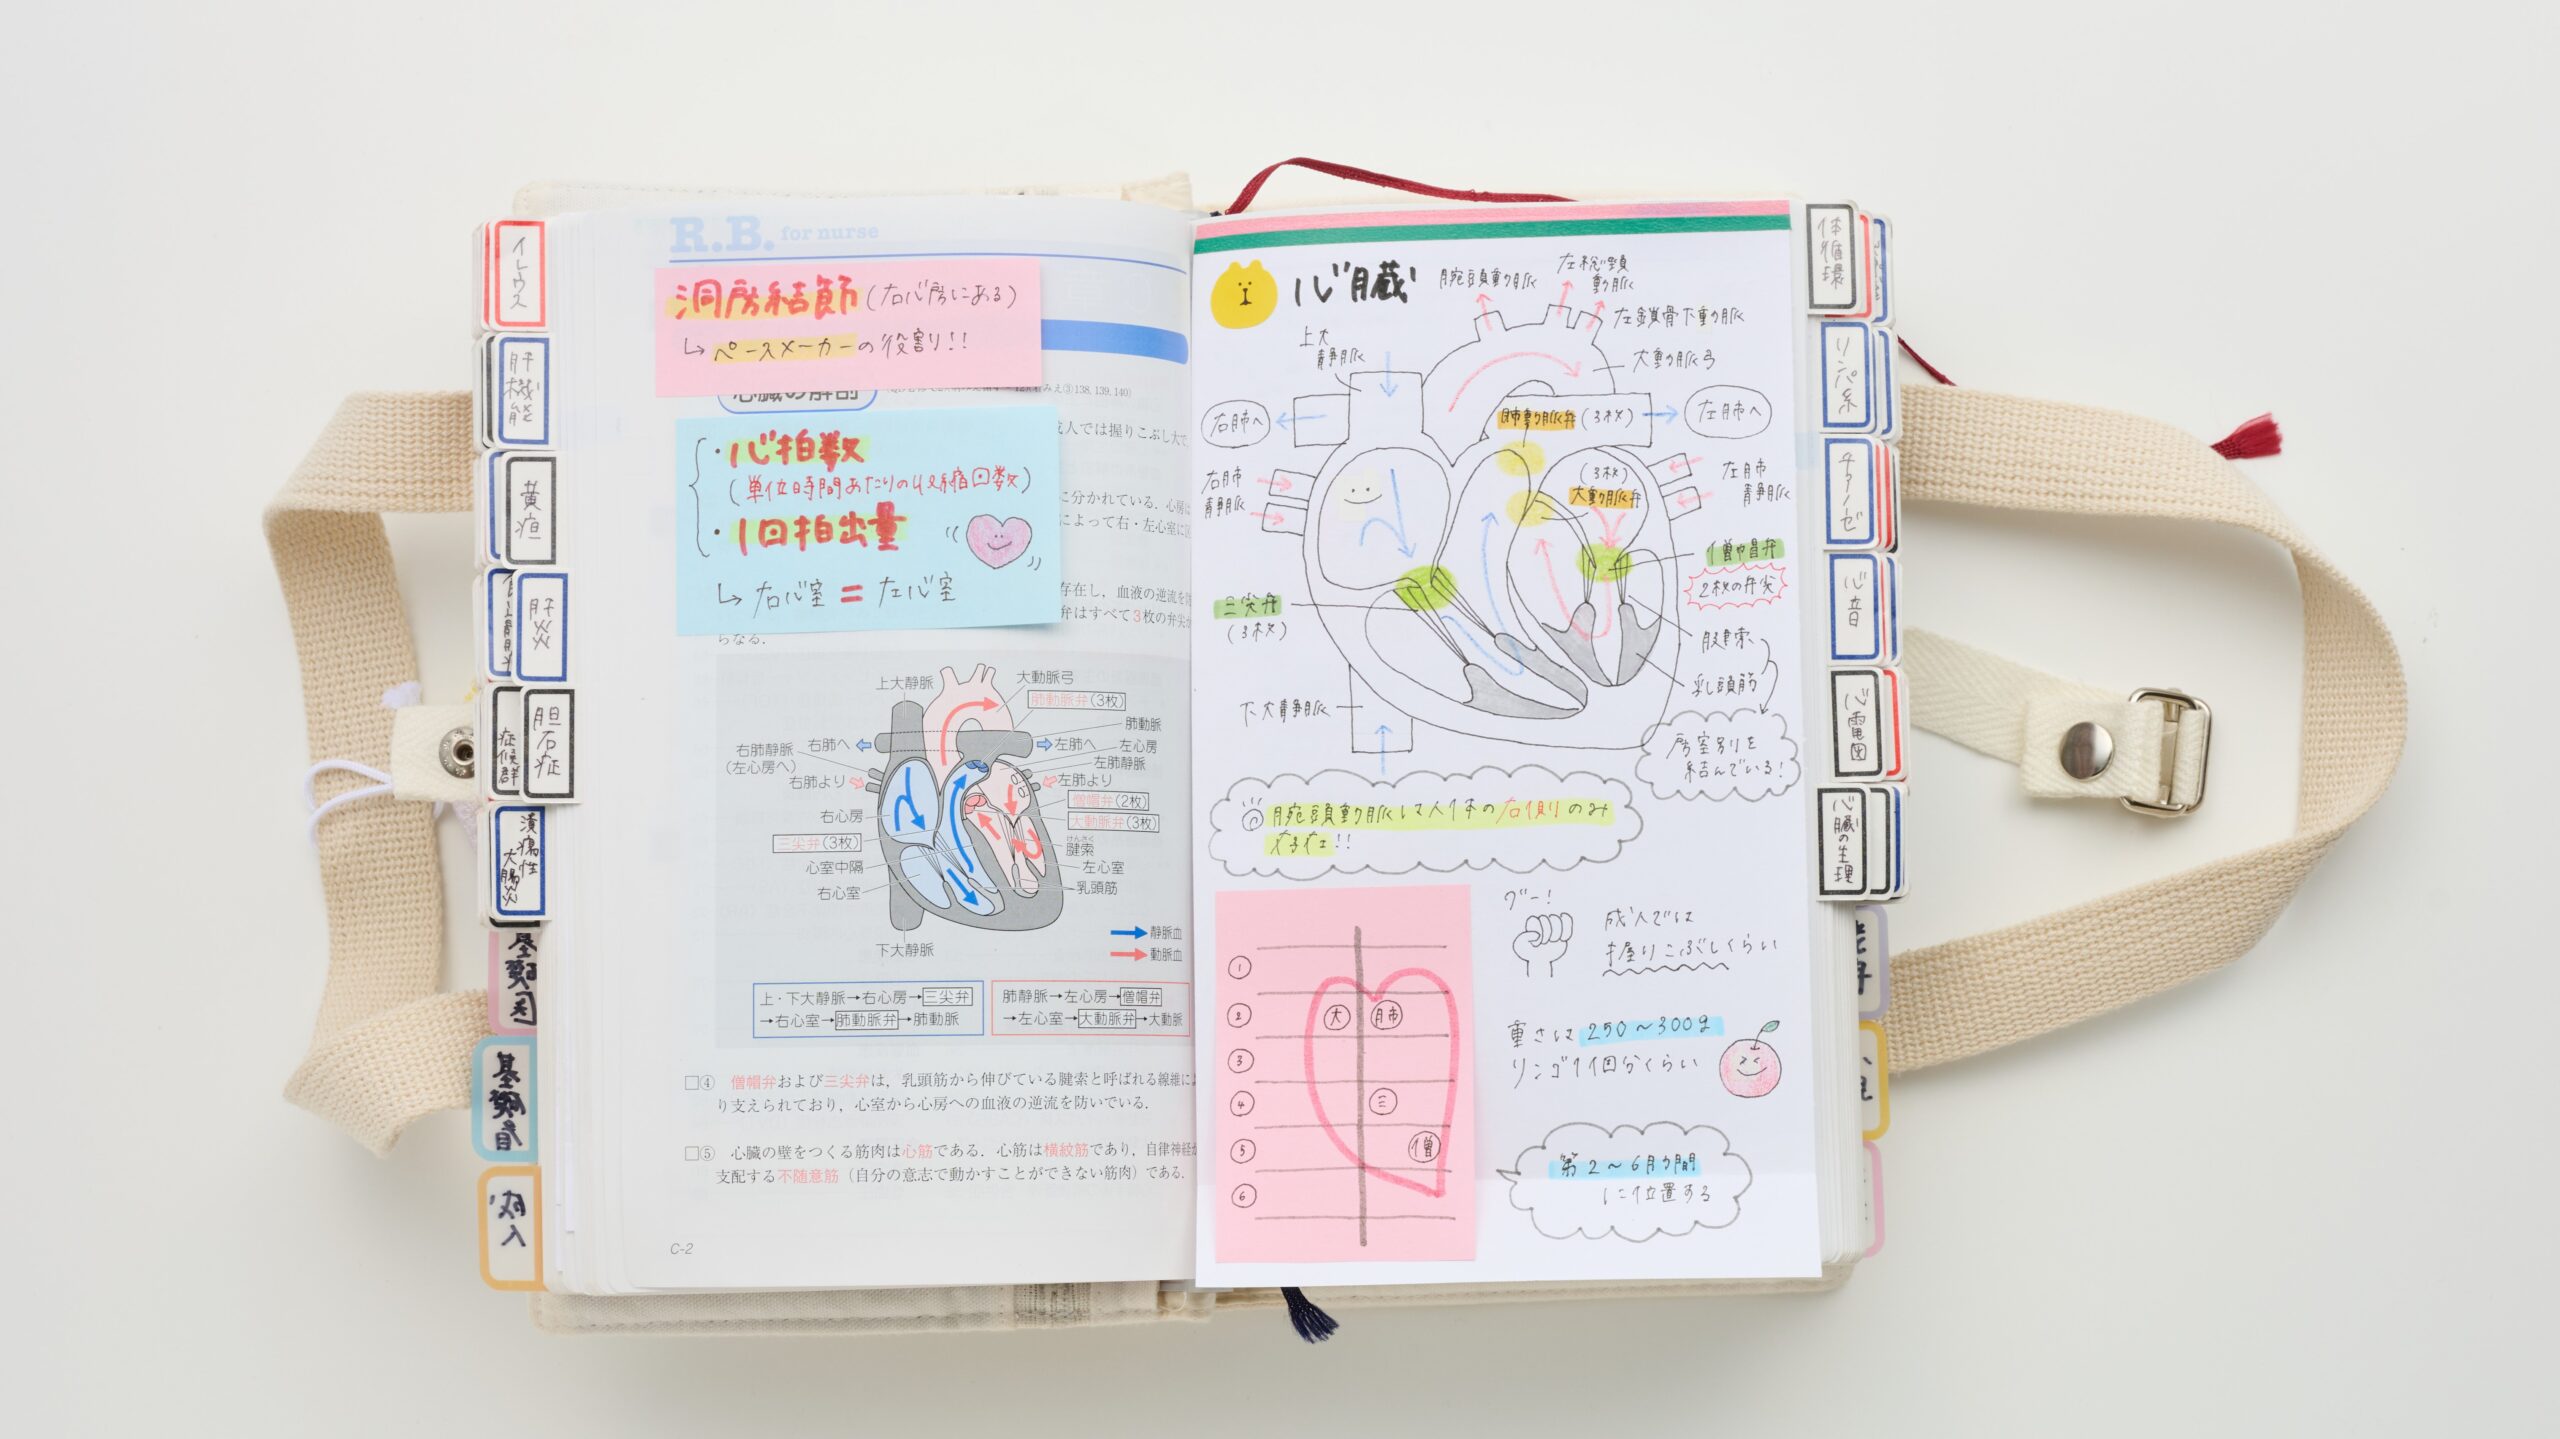 イレウス
肝機能
黄疸
肝炎
症候群
胆石症
潰瘍性
大腸炎
R.B. for nurse
洞房結節(右心房にある)
↳ペースメーカーの役割!!
心臓の解剖
③138. 139. 140)
成人では握りこぶし大で,
・心拍数
(単位時間あたりの収縮回数)
・1回拍出量
↳右心室=左心室
に分かれている. 心房に
によって右・左心室に
存在し, 血液の逆流を
弁はすべて3枚の弁尖か
らなる.
上大静脈
大動脈弓
肺動脈弁(3枚)
肺動脈
右肺静脈
(左心房へ)
右肺へ
左肺へ
左心房
左肺静脈
右肺より
左肺より
僧帽弁(2枚)
大動脈弁(3枚)
右心房
三尖弁(3枚)
けんさく
腱索
心室中隔
左心室
右心室
乳頭筋
下大静脈
静脈血
動脈血
上・下大静脈→右心房→三尖弁
→右心室→肺動脈弁→肺動脈
肺静脈→左心房→僧帽弁
→左心室→大動脈弁→大動脈
□④ 僧帽弁および三尖弁は, 乳頭筋から伸びている腱索と呼ばれる線維によ
り支えられており, 心室から心房への血液の逆流を防いでいる.
□⑤ 心臓の壁をつくる筋肉は心筋である. 心筋は横紋筋であり, 自律神経が
支配する不随意筋(自分の意志で動かすことができない筋肉)である.
C-2
心臓
腕頭動脈
左総頸
動脈
左鎖骨下動脈
上大
静脈
大動脈弓
右肺へ
肺動脈弁(3枚)
左肺へ
右肺
静脈
(3枚)
大動脈弁
左肺
静脈
僧帽弁
2枚の弁尖
三尖弁
(3枚)
腱索
乳頭筋
下大静脈
房室弁を
結んでいる!
◎腕頭動脈は人体の右側のみ
存在!!
① ② ③ ④ ⑤ ⑥
大 肺
三
僧
グー!
成人では
握りこぶしくらい
重さは250〜300g
リンゴ1個分くらい
第2〜6肋間
に位置する
体循環
リンパ系
チアノーゼ
心音
心電図
心臓の生理